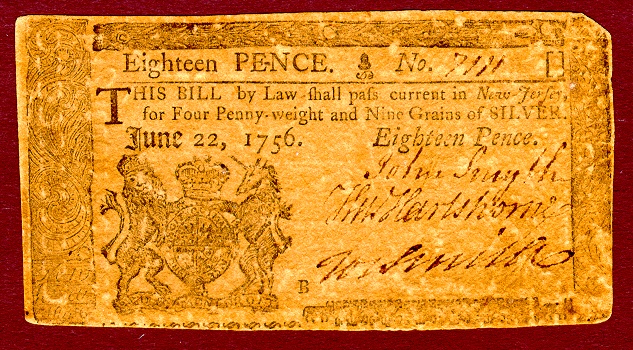 Eighteen PENCE. No. 7111
THIS BILL by Law shall pass current in New-Jersey,
for Four Penny-weight and Nine Grains of SILVER.
June 22, 1756. Eighteen Pence.
John Smyth
Hartshorne
Wm Smith
B